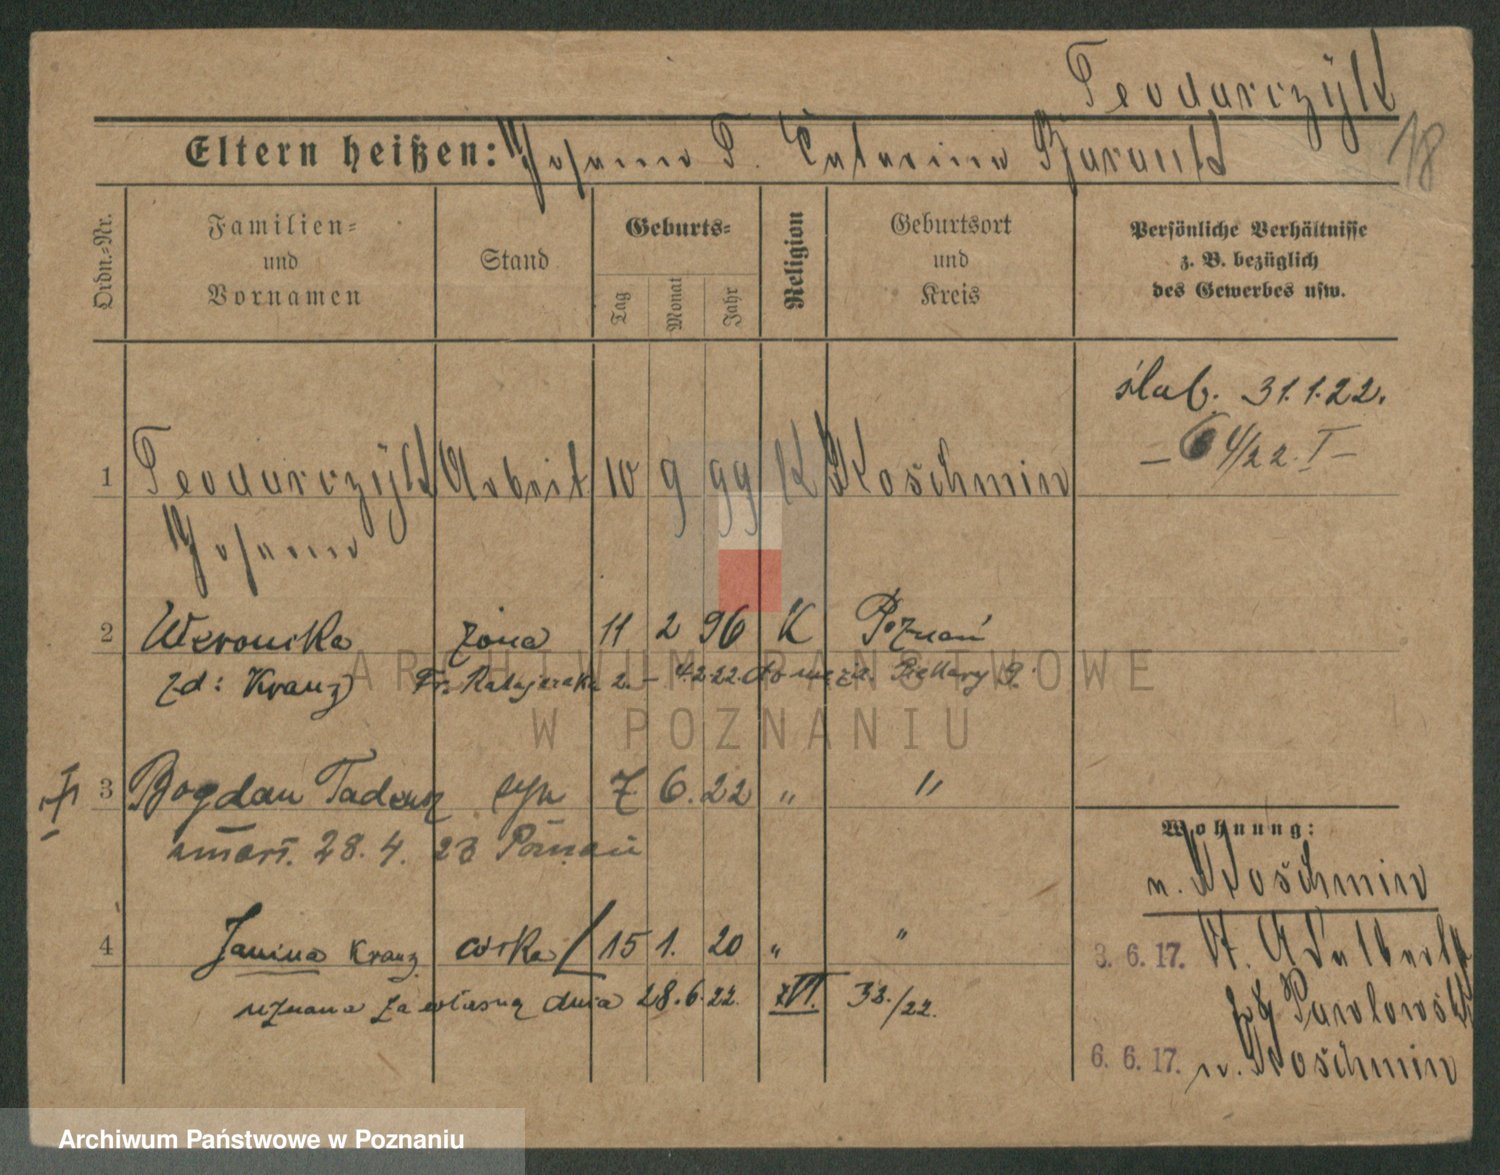 Teodorczyk
18
Eltern heißen: Johann T. Catarina
Ordn.-Nr.
Familien- und Vornamen
Stand
Geburts-
Tag
Monat
Jahr
Religion
Geburtsort und Kreis
Persönliche Verhältnisse z. B. bezüglich des Gewerbes usw.
ślub. 31.1.22.
1 Teodorczyk Arbeit 10 9 99 K Koschmin
Johann
2 Weronika żona 11 2 96 K Poznań
zd: Kranz Fr. Ratajczaka 2. – 4.2.22. do męża. Piekary
3 Bogdan Tadeusz syn 7 6. 22 " "
zmarł. 28. 4. 23 Poznań
4 Janina Kranz córka 15 1. 20 " "
uznana za własną dnia 28.6.22. 38./22.
Wohnung:
n. Koschmin
3. 6. 17. St. Adalbertstr
Pawlowski
6. 6. 17. n. Koschmin
ARCHIWUM PAŃSTWOWE
W POZNANIU
Archiwum Państwowe w Poznaniu